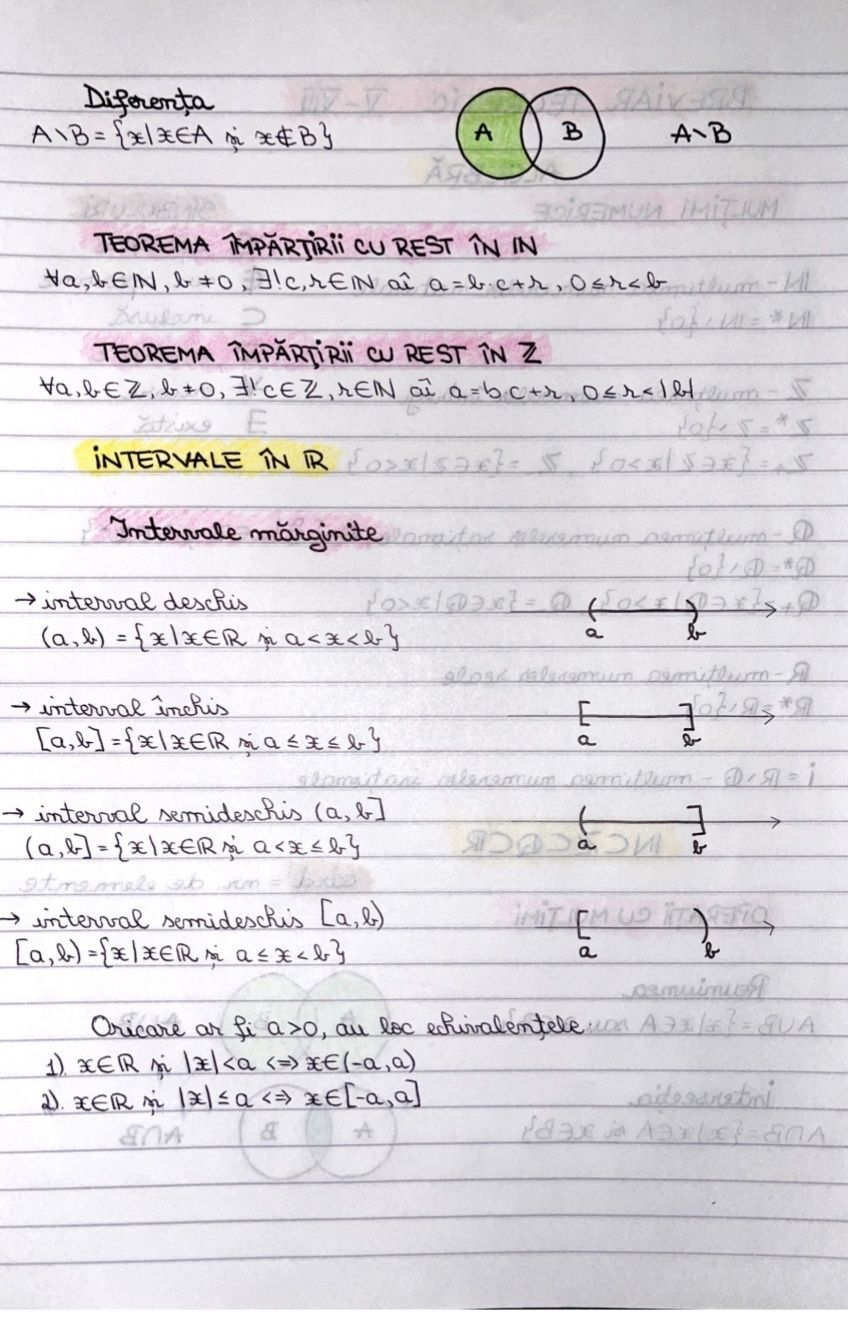 Diferența
A\B = {x|x∈A și x∉B}
A B A\B
TEOREMA ÎMPĂRȚIRII CU REST ÎN ℕ
∀a,b∈ℕ, b≠0, ∃!c,r∈ℕ aî a=b·c+r, 0≤r<b
TEOREMA ÎMPĂRȚIRII CU REST ÎN ℤ
∀a,b∈ℤ, b≠0, ∃!c∈ℤ, r∈ℕ aî a=b·c+r, 0≤r<|b|
INTERVALE ÎN ℝ
Intervale mărginite
→ interval deschis
(a,b) = {x|x∈ℝ și a<x<b}
a b
→ interval închis
[a,b] = {x|x∈ℝ și a≤x≤b}
a b
→ interval semideschis (a,b]
(a,b] = {x|x∈ℝ și a<x≤b}
a b
→ interval semideschis [a,b)
[a,b) = {x|x∈ℝ și a≤x<b}
a b
Oricare ar fi a>0, au loc echivalențele:
1). x∈ℝ și |x|<a <=> x∈(-a,a)
2). x∈ℝ și |x|≤a <=> x∈[-a,a]